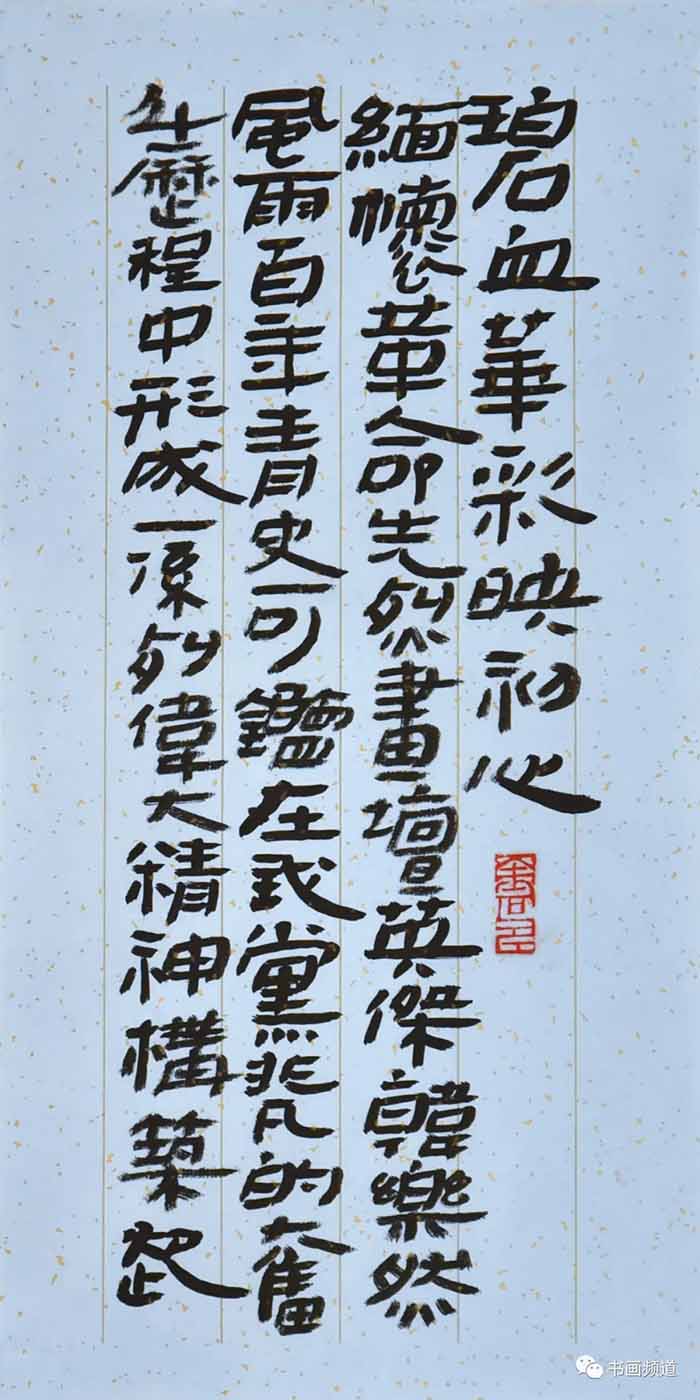 碧血華彩映初心
緬懷革命先烈畫壇英傑韓樂然
風雨百年青史可鑑在我黨非凡的奮
斗歷程中形成一系列偉大精神構築起
书画频道